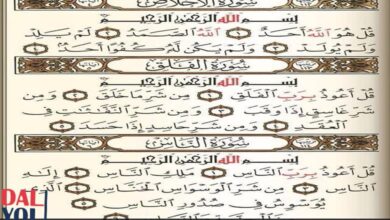 سورة الاخلاص
بسم الله الرحمن الرحيم
قل هو الله أحد ١ الله الصمد ٢ لم يلد
ولم يولد ٣ ولم يكن له كفوا أحد ٤
سورة الفلق
بسم الله الرحمن الرحيم
قل أعوذ برب الفلق ١ من شر ما خلق ٢ ومن
شر غاسق إذا وقب ٣ ومن شر النفاثات في
العقد ٤ ومن شر حاسد إذا حسد ٥
سورة الناس
بسم الله الرحمن الرحيم
قل أعوذ برب الناس ١ ملك الناس ٢ إله
الناس ٣ من شر الوسواس الخناس ٤ الذي
يوسوس في صدور الناس ٥
DAL
YOL